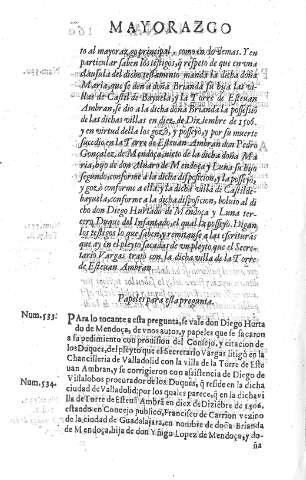 MAYORAZGO
to al mayorazgo principal, como en lo demas. Y en
particular saben los testigos, q̃ respeto de que en vna
clausula del dicho testamento manda la dicha doña
Maria, que se den a doña Brianda su hija las vi-
llas de Castil de Bayuela, y la Torre de Esteuan
Ambran, se dio a la dicha doña Brianda la possessiõ
de las dichas villas en diez de Diziembre de 1506.
y en virtud della los gozò, y posseyò, y por su muerte
sucedio en la Torre de Esteuan Ambran don Pedro
Gonçalez de Mendoça, nieto de la dicha doña Ma
ria, hijo de don Aluaro de Mendoça y Luna su hijo
segundo, conforme a la dicha disposicion, y la posseyò,
y gozò conforme a ella, y la dicha villa de Castil de
bayuela, conforme a la dicha disposicion, boluio al di
cho don Diego Hurtado de Mendoça y Luna ter-
cero Duque del Infantado, el qual la posseyò. Digan
los testigos lo que saben, y remitanse a las escrituras
que ay en el pleyto sacadas de vn pleyto que el Secre-
tario Vargas tratò con la dicha villa de la Torre
de Esteuan Ambran.
Papeles para esta pregunta.
Num. 533.
PAra lo tocante a esta pregunta, se vale don Diego Hurta
do de Mendoça, de vnos autos, y papeles que se sacaron
a su pedimento con prouision del Consejo, y citacion de
los Duques, del pleyto que el Secretario Vargas litigò en la
Chancilleria de Valladolid con la villa de la Torre de Este
uan Ambran, y se corrigieron con asistencia de Diego de
Num. 534.
Villalobos procurador de los Duques, q̃ reside en la dicha
ciudad de Valladolid: por los quales parece, q̃ en la dicha vi
lla de Torre de Esteuã Ambrã en diez de Diziẽbre de 1506.
estando en Concejo publico, Francisco de Carrion vezino
de la ciudad de Guadalajara, en nombre de doña Brianda
de Mendoça, hija de don Yñigo Lopez de Mendoça, y do-
ña